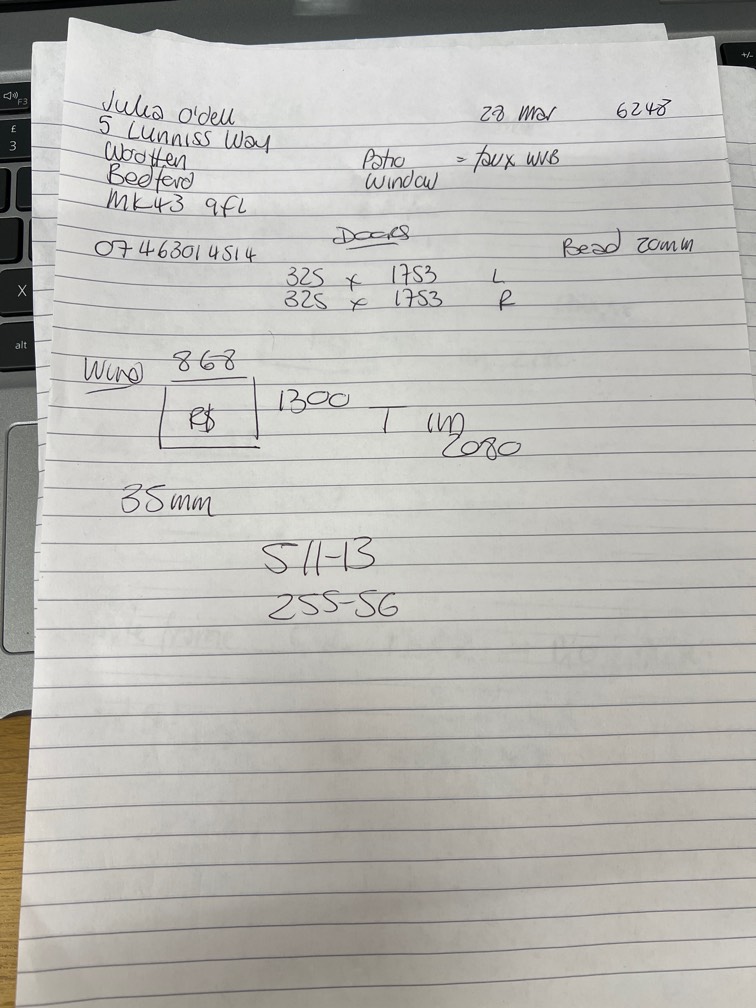 Julia O'dell 28 Mar 6248
5 Lunniss Way
Wootten Patio = faux WVB
Bedford Window
MK43 9FL
07463014514 Doors Bead 20mm
325 x 1753 L
325 x 1753 R
Wind 868
1300
T
2080
35mm
511-13
255-56